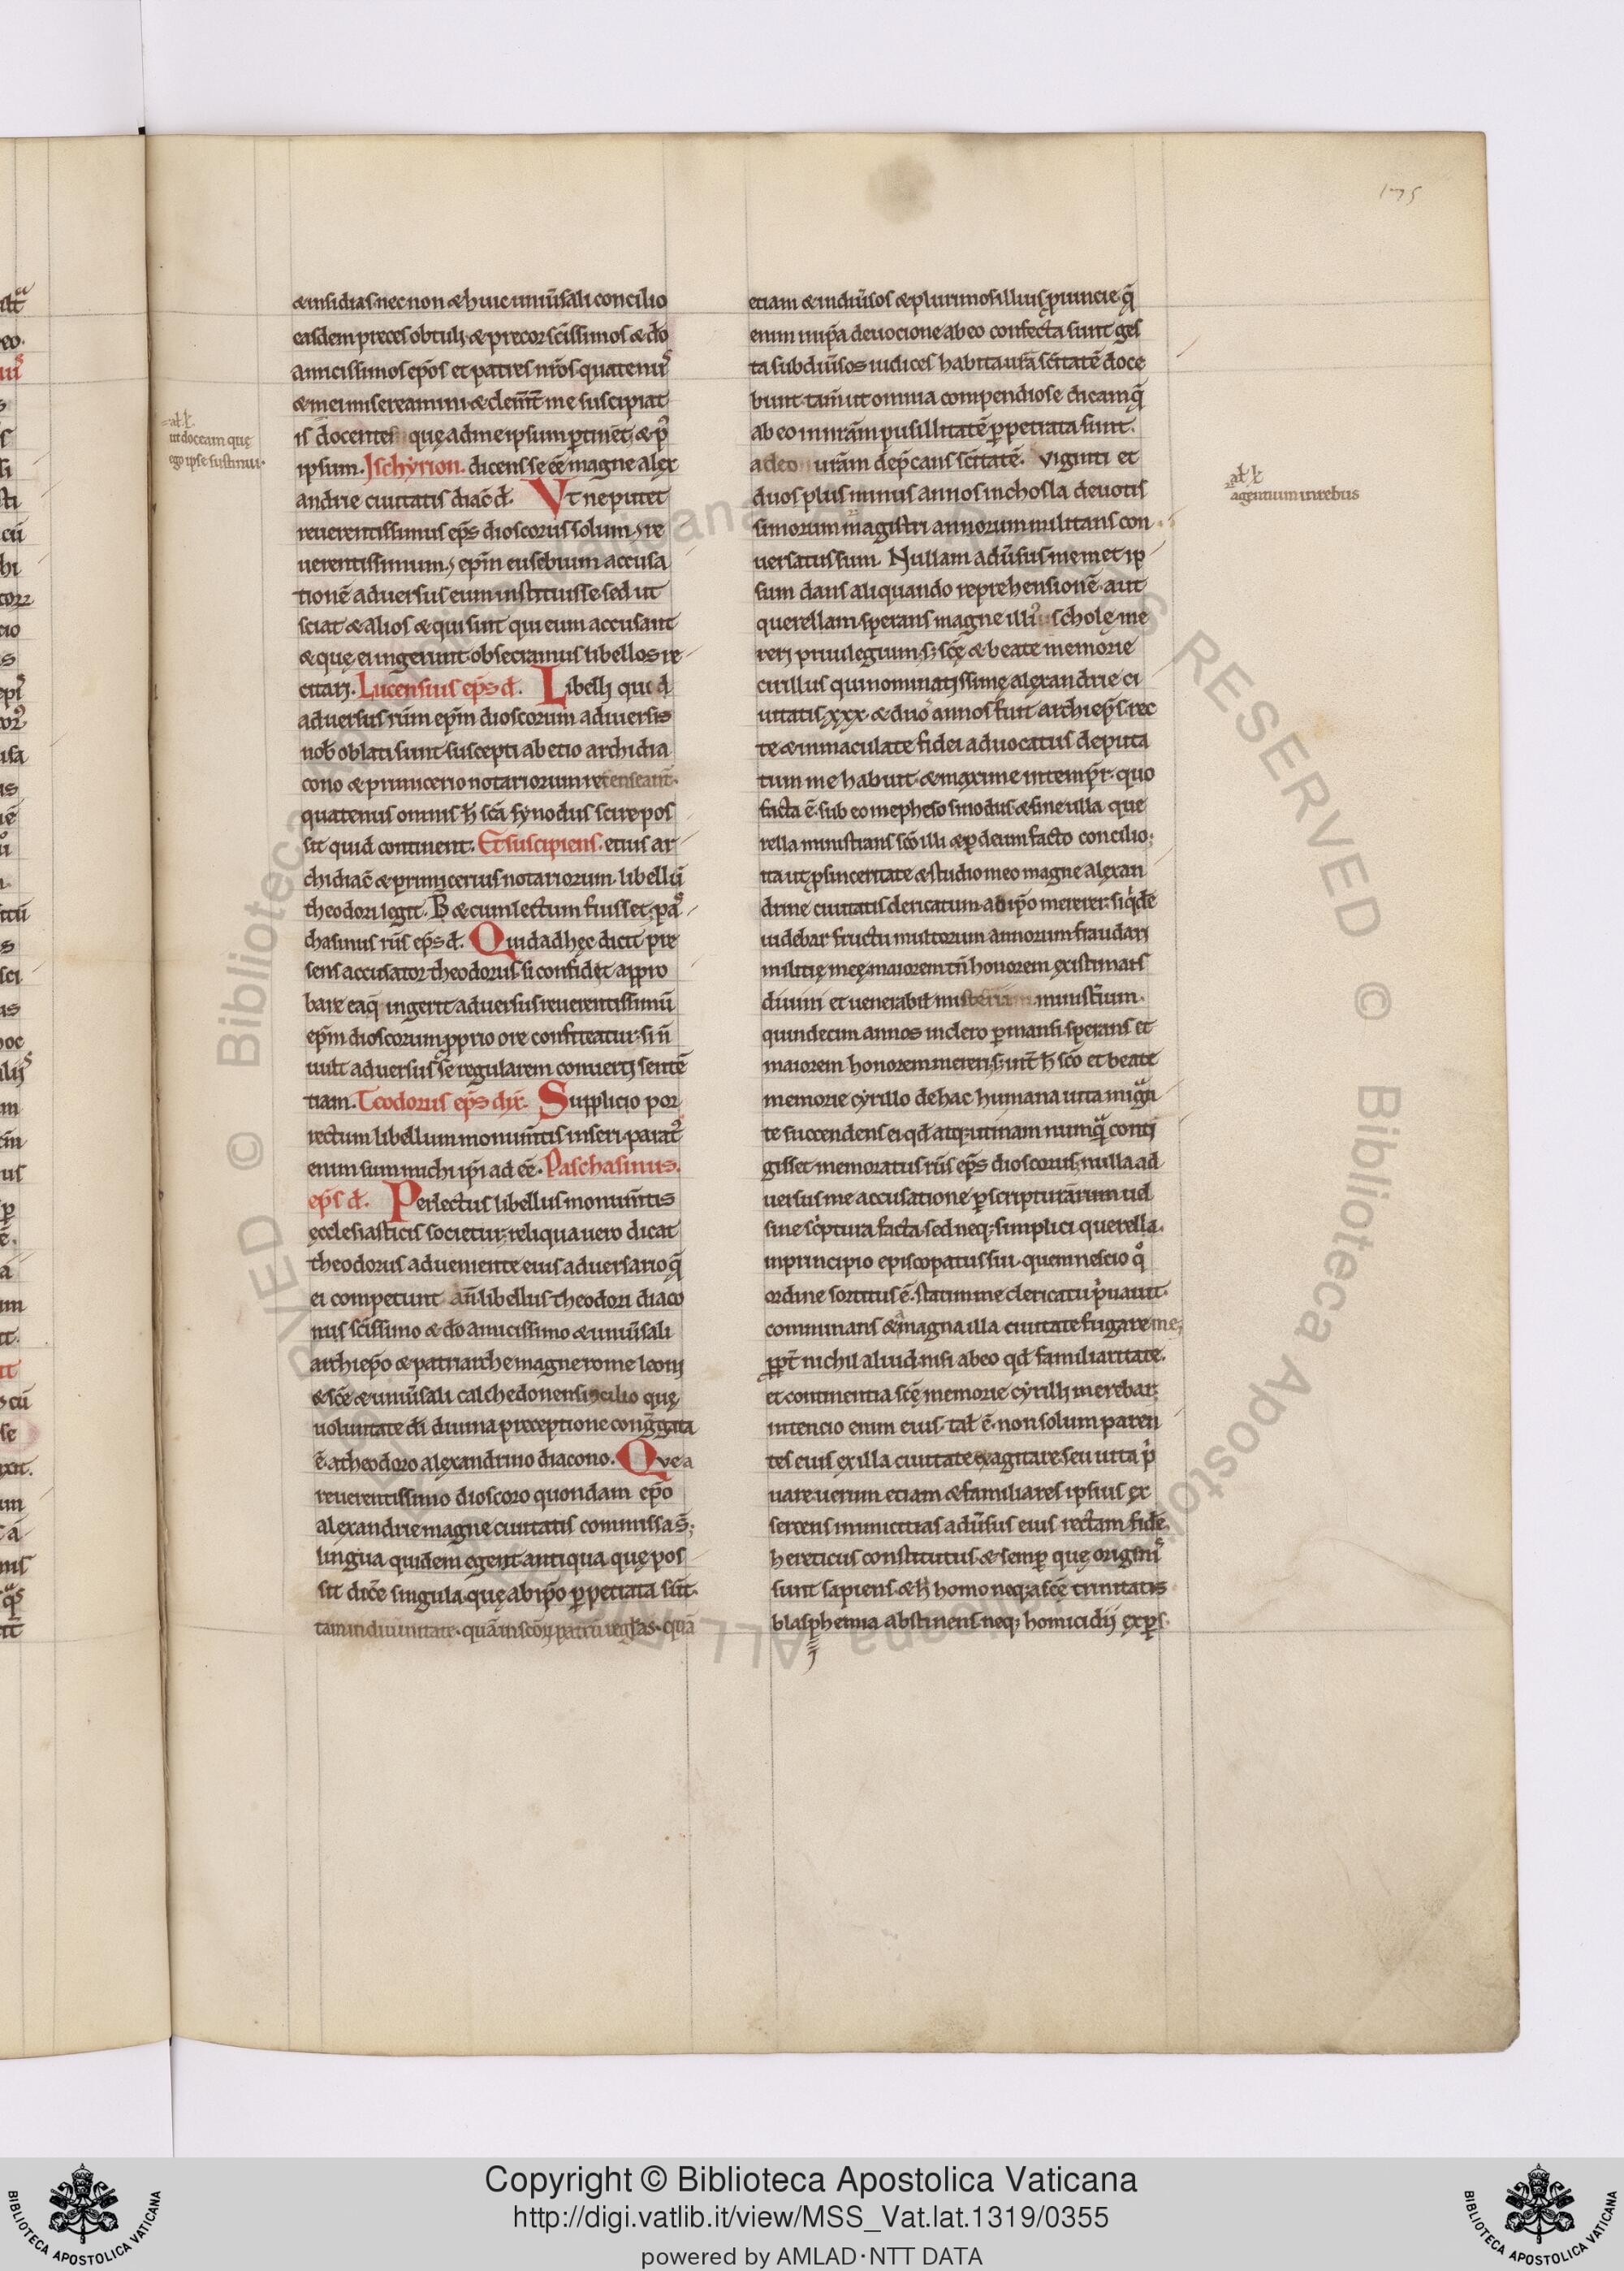 175
& insidias nec non & huic uniu̅sali concilio
easdem preces obtulj. & precor sc̅issimos & do̅
amicissimos ep̅os et patres nr̅os quatenus
& mei misereamini & clem̅t me suscipiat
is docentes quę ad me ipsum p̅tinēt, & p̲
ipsum. Ischyrion. dicens se e̅e magne alex
andrie ciuitatis diac̅ d̅. Vt ne putet
reuerentissimus ep̅s dioscorus solum re
uerentissimum ep̅m eusebium accusa
tionē aduersus eum instituisse sed ut
sciat & alios & qui sint qui eum accusant
& quę ei ingerunt. obsecramus libellos re
citarj. Lucensius ep̅s d̅. Libellj qui d̅
aduersus rm̅ ep̅m dioscorum aduersis
nob̅ oblati sunt suscepti ab etio archidia
cono & primicerio notariorum recenseant̅.
quatenus omnis h̅ sc̅a synodus scire pos
sit quid continent. Et suscipiens. etius ar
chidiac̅ & primicerius notariorum. libellū
theodori legit. & cum lectum fuisset, pa
chasinus rūs ep̅s d̅. Quid ad hęc dicit pre
sens accusator theodorus. si confidet appro
bare ea q̅ ingerit aduersus reuerentissimū
ep̅m dioscorum. p̲prio ore confiteatur. si n̅
uult aduersus se regularem conuertj sentē
tiam. Teodorus ep̅s dix̅. Supplicio por
rectum libellum monum̅tis inseri. parat'
enim sum michi ip̅i ad e̅e. Paschasinus.
ep̅s d̅. Perlectus libellus monum̅tis
ęcclesiasticis societur. reliqua uero dicat
theodorus adueniente eius aduersario q̅
ei competunt. an̅. libellus theodori diaco
nus sc̅issimo & do̅ amicissimo & uniu̅sali
archiep̅o & patriarche magne rome leonj
& sc̅e & uniu̅sali calchedonensi ɔcilio quę
uoluntate di̅ diuina preceptione cong̅gata
e̅. a theodoro alexandrino diacono. Que a
reuerentissimo dioscoro quondam ep̅o
alexandrie magne ciuitatis commissa s̅;
lingua quidem egent antiqua quę pos
sit dice̅ singula. quę ab ip̅o p̲petrata sūt.
tam in diuinitate. quā in sc̅oꝝ patrū reglas. quā
al̅ l̅.
ut doceam quę
ego ipse sustinui.
etiam & in diu̅sos & plurimos illius p̲uincie q̅
enim in ip̅a deuocione ab eo confecta sunt ges
ta sub diu̅sos iudices habita ur̅a sc̅itatē doce
bunt. tam̅ ut omnia compendiose dicam q̅
ab eo in mr̅am pusillitatē p̲petrata sunt.
adeo ur̅am dep̅cans sc̅itatē. viginti et
duos plus minus annos in chosla deuotis
simorum magistri annorum militans con
uersatus sum. Nullam adu̅sus memet ip
sum dans aliquando reprehensionē aut
querellam. sperans magne illius scholę me
rerj priuilegium. s; sc̅ę & beate memorie
cirillus qui nominatissimę alexandrie ci
uitatis. xxx. & duo annos fuit archiep̅s. rec
te & inmaculate fidei aduocatus deputa
tum me habuit. & maxime in temp̅r. quo
facta ē. sub eo in epheso sinodus & sine ulla que
rella ministrans sc̅o illi & p̲ deum facto concilio;
ita ut p̲ sinceritate & studio meo magne alexan
drine ciuitatis clericatum. ab ip̅o mererer. siq̅dē
uidebar fructu multorum annorum fraudari
militię meę. maiorem tn̅ honorem existimans
diuini et uenerabil̅ misterium ministr̅ium.
quindecim annos in clero p̲mansi. sperans et
maiorem honorem mererj. s; int̅ h̅ sc̅o et beate
memorie cyrillo de hac humana uita migra
te succendens ei qd̅ atq; utinam numq̅ contj
gisset memoratus rūs ep̅s dioscorus. nulla ad
uersus me accusatione p̲ scripturārum uel
sine sc̅ptura facta. sed neq; simplici querella.
in principio episcopatus sui. quem nescio q̊
ordine sortitus ē. statim me clericatu p̅uauit.
comminans & a magna illa ciuitate fugare me,
pp̅t nichil aliud. nisi ab eo qd̅ familiaritate.
et continentia sc̅ę memorie cyrillj merebar.
intencio enim eius. tal̅ ē. non solum paren
tes eius ex illa ciuitate exagitare. seu uita p̅
uare uerum etiam & familiares ipsius ex
sercens inimicitias adu̅sus eius rectam fidē,
hereticus constitutus. & semp̲ que origenis
sunt sapiens. & h̅ homo neq; a sc̅ę trinitatis
blasphemia abstinens. neq; homicidij exp̲s.
al̅ l̅
agentium in rebus
Copyright © Biblioteca Apostolica Vaticana
http://digi.vatlib.it/view/MSS_Vat.lat.1319/0355
powered by AMLAD·NTT DATA
BIBLIOTECA APOSTOLICA VATICANA
BIBLIOTECA APOSTOLICA VATICANA